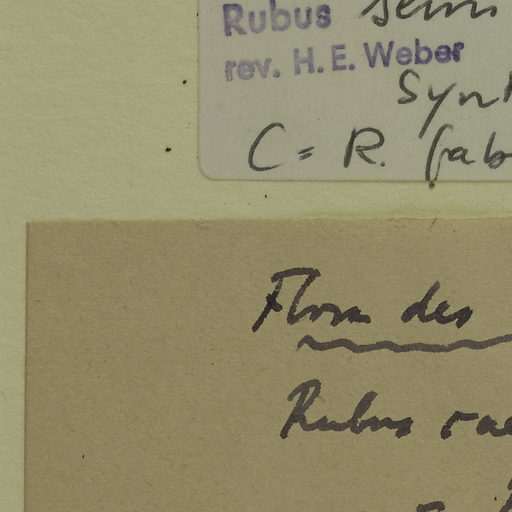 Rubus semi
rev. H. E. Weber
Synt
C = R. fab
Flora des
Rubus cae